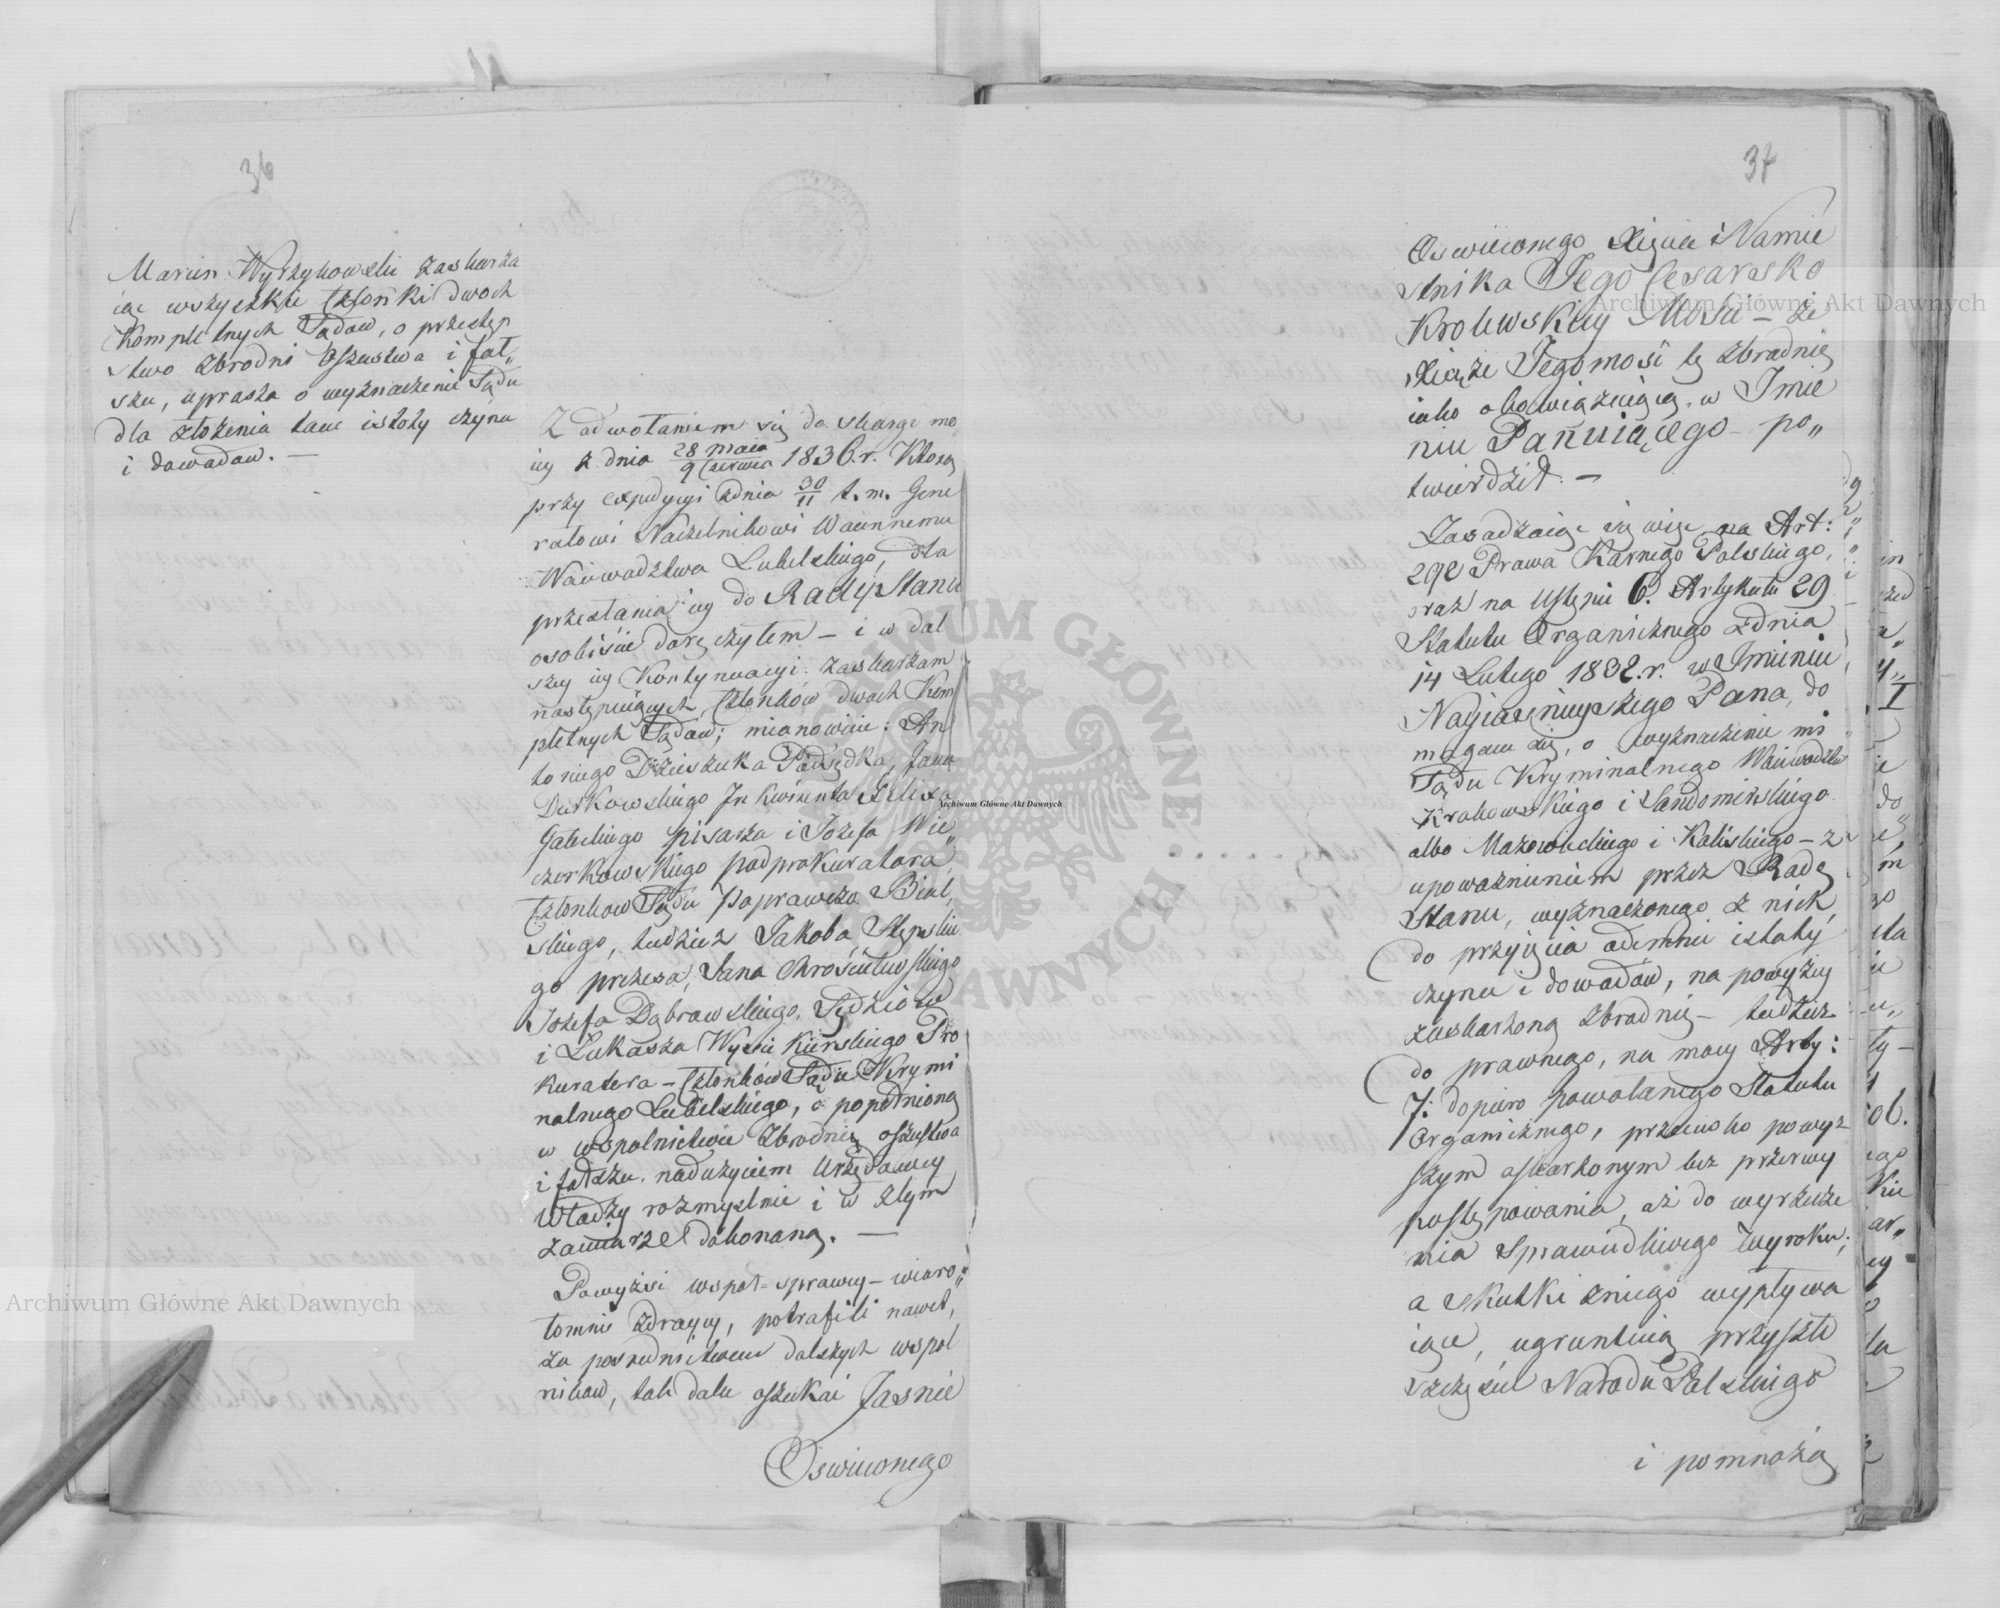 36
Marcin Wyrzykowski zaskarża
iąc wszystkie Członki dwoch
Kompletnych Sądow, o przestęp
stwo zbrodni Oszustwa i fał„
szu, uprasza o wyznaczenie Sądu
dla złożenia tam istoty czynu
i dowodow. —
Z odwołaniem się do skargi mo
iey z dnia 28 maia / 9 Czerwca 1836. r. Którą
przy expedycyi zdnia 30/11 t. m. Gene
rałowi Naczelnikowi Woiennemu
Woiewodztwa Lubelskiego, dla
przesłania iey do Rady Stanu
osobiście doręczyłem – i w dal
szey iey Kontynuacyi, zaskarżam
następuiących Członków dwoch Kom
pletnych Sądów; mianowicie: An
toniego Dzieszuka Podsędka, Jana
Dutkowskiego Inkwirenta Felixa
Gałeckiego pisarza i Jozefa Wie„
czorkowskiego podprokuratora,
Członkow Sądu Poprawczo Bial„
skiego, tudzież Jakoba Stępskie
go prezesa, Jana Chrościelewskiego
Jozefa Dąbrowskiego, Sędziów
i Łukasza Wyszkierskiego Pro
kuratora – Członków Sądu Krymi
nalnego Lubelskiego, o popełnioną
w wspolnictwie zbrodnię oszustwa
i fałszu, nadużyciem Urzędowey
Władzy rozmyślnie i w złym
zamiarze dokonaną. —
Powyżsi wspoł-sprawcy – wiaro„
łomni zdraycy, potrafili nawet,
za posrednictwem dalszych wspol
nikow, tak dalu oszukai Jasnie
Oswieconego
37
Oswieconego Xięcia i Namie
stnika Jego Cesarsko
Krolewskiey Mosci – że
Xiąże Jegomość tę zbrodnię
iako obowięzuiącą, w Imie
niu Panuiącego – po„
twierdził. —
Zasadzaiąc się więc na Art:
292 Prawa Karnego Polskiego,
oraz na Ustępie 6. Artykułu 29
Statutu Organicznego zdnia
14 Lutego 1832. r. w Imieniu
Nayiaśnieyszego Pana, do
magam się, o wyznaczenie mi
Sądu Kryminalnego Woiewodztw
Krakowskiego i Sandomirskiego
albo Mazowieckiego i Kaliskiego – z
upoważnieniem przez Radę
Stanu, wyznaczonego z nich
do przyięcia odemnie istoty
czynu i dowodów, na powyżey
zaskarżoną zbrodnię – tudzież
do prawnego, na mocy Arty:
7: dopiero powołanego Statutu
Organicznego, przeciwko powyż
szym oskarżonym bez przerwy
postępowania, aż do wyrzecze
nia sprawiedliwego Wyroku;
a skutki zniego wypływa
iące, ugruntuią przyszłe
szczęście Narodu Polskiego
i pomnożą
Archiwum Główne Akt Dawnych
Archiwum Główne Akt Dawnych
Archiwum Główne Akt Dawnych
ARCHIWUM GŁÓWNE AKT DAWNYCH